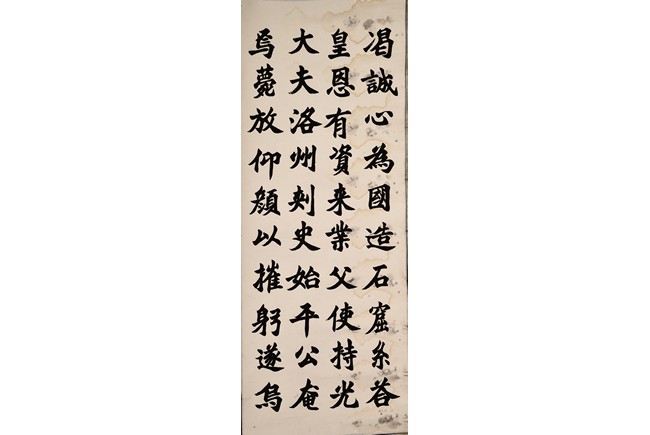 渴誠心為國造石窟糸荅
皇恩有資来業父使持光
大夫洛州刾史始平公奄
焉薨放仰顏以摧躬遂烏